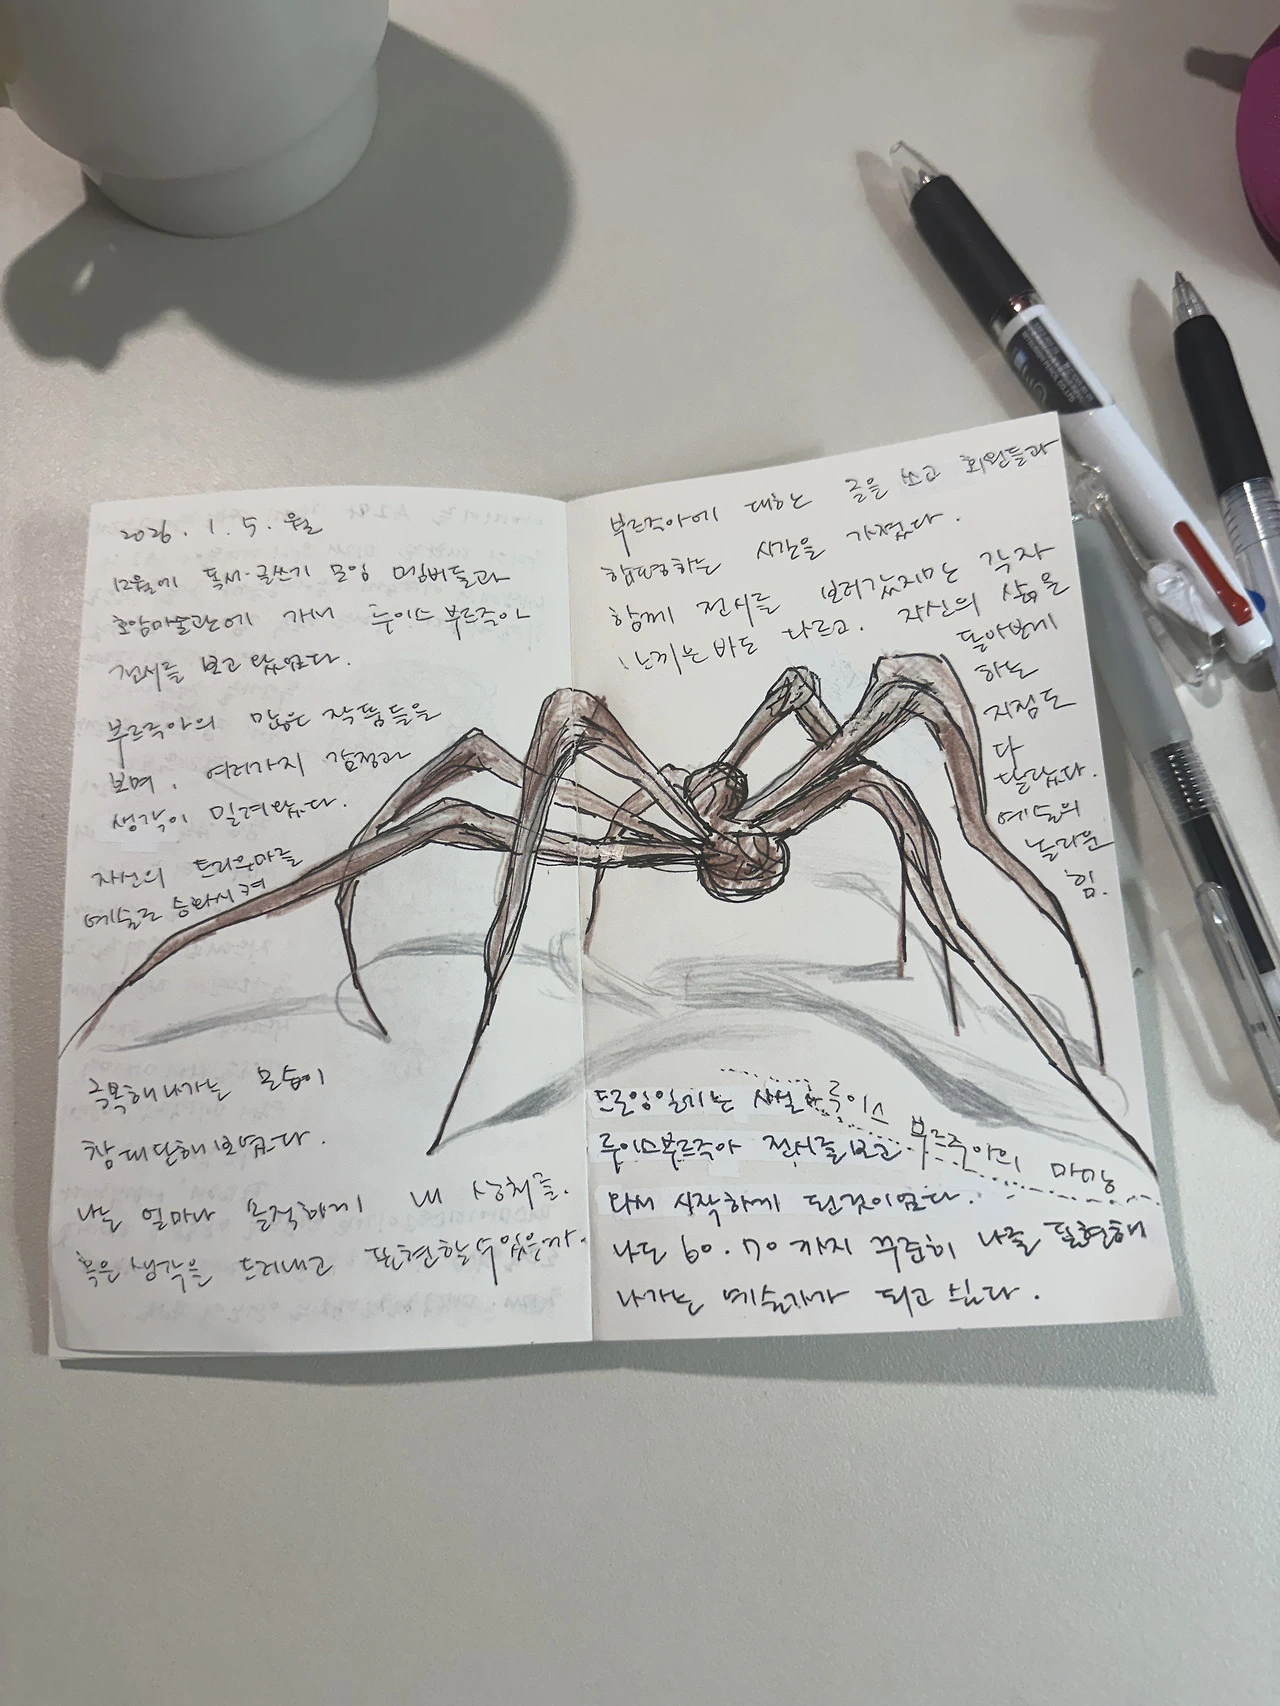 2026. 1. 5. 월
12월에 독서·글쓰기 모임 멤버들과
호암미술관에 가서 루이스 부르주아
전시를 보고 왔었다.
부르주아의 많은 작품들을
보며, 여러가지 감정과
생각이 밀려왔다.
자신의 트라우마를
예술로 승화시켜
극복해나가는 모습이
참 대단해보였다.
나는 얼마나 솔직하게 내 상처를,
혹은 생각을 드러내고 표현할 수 있을까.
부르주아에 대하는 글을 쓰고 회원들과
합평하는 시간을 가졌다.
함께 전시를 보러갔지만 각자
느끼는 바도 다르고, 자신의 삶을
돌아보게
하는
지점도
다
달랐다.
예술의
놀라운
힘.
드로잉일기는 사실 루이스
루이스부르주아 전시를 보고 부르주아의 마망
와서 시작하게 된것이었다.
나도 60.70까지 꾸준히 나를 표현해
나가는 예술가가 되고 싶다.